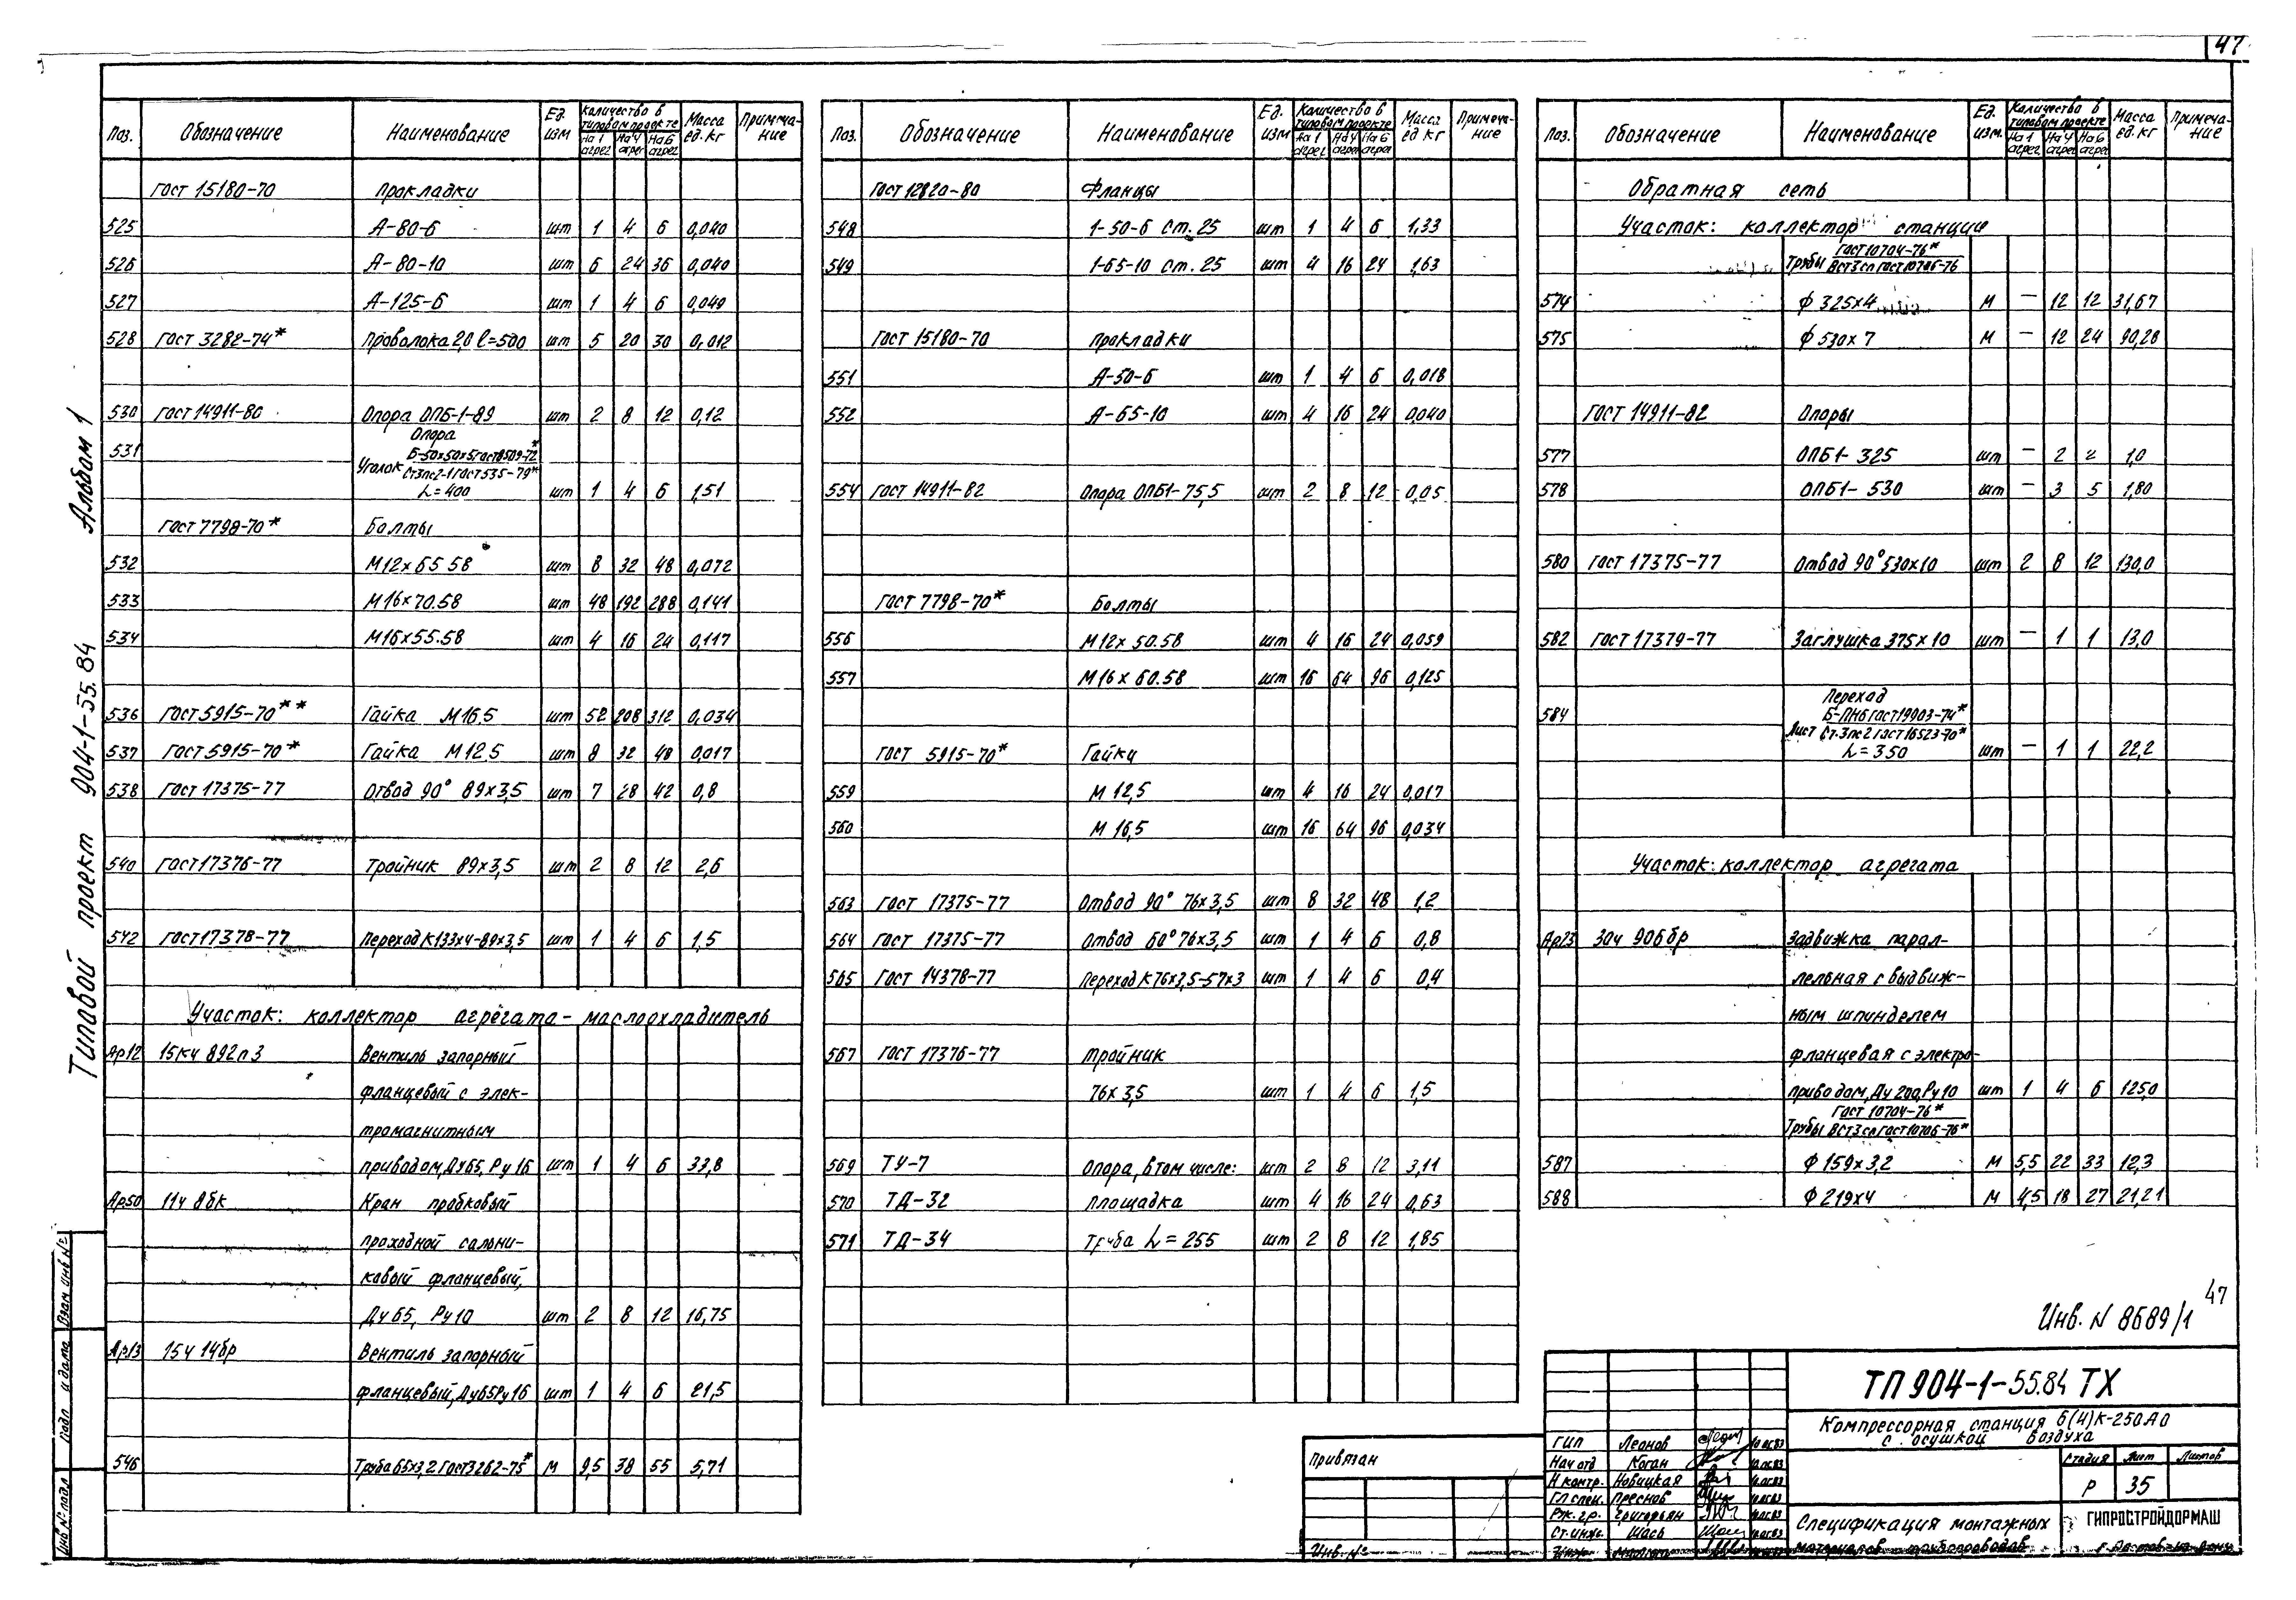 47
Альбом 1
Типовой проект 904-1-55.84
Поз. Обозначение Наименование Ед. изм Количество в типовом проекте На 1 агрег На 4 агрег На 6 агрег Масса ед. кг Примечание
ГОСТ 15180-70 Прокладки
525 А-80-6 шт 1 4 6 0,040
526 А-80-10 шт 6 24 36 0,040
527 А-125-6 шт 1 4 6 0,040
528 ГОСТ 3282-74* Проволока 2,0 l=500 шт 5 20 30 0,012
530 ГОСТ 14911-80 Опора ОПБ-1-89 шт 2 8 12 0,12
531 Опора
Уголок Б-50х50х5 ГОСТ 8509-72*
Ст3пс2-1 ГОСТ 535-79*
L=400 шт 1 4 6 1,51
ГОСТ 7798-70* Болты
532 М12х65 58 шт 8 32 48 0,072
533 М16х70.58 шт 48 192 288 0,141
534 М16х55.58 шт 4 16 24 0,117
536 ГОСТ 5915-70** Гайка М16.5 шт 52 208 312 0,034
537 ГОСТ 5915-70* Гайка М12.5 шт 8 32 48 0,017
538 ГОСТ 17375-77 Отвод 90° 89х3,5 шт 7 28 42 0,8
540 ГОСТ 17376-77 Тройник 89х3,5 шт 2 8 12 2,6
542 ГОСТ 17378-77 Переход К133х4-89х3,5 шт 1 4 6 1,5
Участок: коллектор агрегата-маслоохладитель
Ар12 15кч 892п3 Вентиль запорный
фланцевый с элек-
тромагнитным
приводом, Ду65, Ру16 шт 1 4 6 33,8
Ар50 11ч 8бк Кран пробковый
проходной сальни-
ковый фланцевый,
Ду65, Ру10 шт 2 8 12 16,75
Ар13 15ч 14бр Вентиль запорный
фланцевый, Ду65 Ру16 шт 1 4 6 21,5
546 Труба 65х3,2 ГОСТ 3262-75* М 9,5 38 55 5,71
Поз. Обозначение Наименование Ед. изм Количество в типовом проекте На 1 агрег На 4 агрег На 6 агрег Масса ед кг Примечание
ГОСТ 12820-80 Фланцы
548 1-50-6 ст. 25 шт 1 4 6 1,33
549 1-65-10 ст. 25 шт 4 16 24 1,63
ГОСТ 15180-70 Прокладки
551 А-50-6 шт 1 4 6 0,018
552 А-65-10 шт 4 16 24 0,040
554 ГОСТ 14911-82 Опора ОПБ1-75,5 шт 2 8 12 0,05
ГОСТ 7798-70* Болты
556 М12х50.58 шт 4 16 24 0,059
557 М16х60.58 шт 16 64 96 0,125
ГОСТ 5915-70* Гайки
559 М 12,5 шт 4 16 24 0,017
560 М 16,5 шт 16 64 96 0,034
563 ГОСТ 17375-77 Отвод 90° 76х3,5 шт 8 32 48 1,2
564 ГОСТ 17375-77 Отвод 60° 76х3,5 шт 1 4 6 0,8
565 ГОСТ 14378-77 Переход К76х3,5-57х3 шт 1 4 6 0,4
567 ГОСТ 17376-77 Тройник
76х3,5 шт 1 4 6 1,5
569 ТУ-7 Опора, в том числе: шт 2 8 12 3,11
570 ТД-32 Площадка шт 4 16 24 0,63
571 ТД-34 Труба L=255 шт 2 8 12 1,85
Поз. Обозначение Наименование Ед. изм. Количество в типовом проекте На 1 агрег. На 4 агрег На 6 агрег Масса ед. кг Примечание
Обратная сеть
Участок: коллектор станции
Трубы ГОСТ 10704-76*
ВСт3сп ГОСТ 10706-76
574 ф 325х4 М - 12 12 31,67
575 ф 530х7 М - 12 24 90,28
ГОСТ 14911-82 Опоры
577 ОПБ1-325 шт - 2 2 1,0
578 ОПБ1-530 шт - 3 5 1,80
580 ГОСТ 17375-77 Отвод 90° 530х10 шт 2 8 12 130,0
582 ГОСТ 17379-77 Заглушка 375х10 шт - 1 1 13,0
584 Переход
Лист Б-ПН6 ГОСТ 19903-74*
Ст.3пс2 ГОСТ 16523-70*
L=350 шт - 1 1 22,2
Участок: коллектор агрегата
Ар23 30ч 906бр Задвижка парал-
лельная с выдвиж-
ным шпинделем
фланцевая с электро-
приводом, Ду 200, Ру10 шт 1 4 6 125,0
Трубы ГОСТ 10704-76*
ВСт3сп ГОСТ 10706-76*
587 ф 159х3,2 М 5,5 22 33 12,3
588 ф 219х4 М 4,5 18 27 21,21
47
Инв. N 8689/1
ТП 904-1-55.84 ТХ
Компрессорная станция 6(4)К-250А0
с осушкой воздуха
Стадия Лист Листов
Р 35
Спецификация монтажных
материалов трубопроводов
ГИПРОСТРОЙДОРМАШ
г. Ростов-на-Дону
ГИП Леонов 10.05.83
Нач отд Коган 10.05.83
Н контр. Новицкая 10.05.83
Гл спец. Преснов 10.05.83
Рук. гр. Григорьян 10.05.83
Ст. инж. Шась 10.05.83
Инж.
Привязан
Инв. №
Взам инв №
Подп и дата
Инв № подл